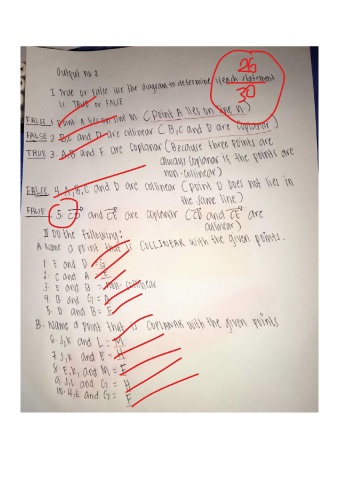 Output no. 2
I True or False Use the diagram to determine if each statement
is TRUE or FALSE
26
30
FALSE 1. Point A lies on line m (Point A lies on line n)
FALSE 2. B, C and D are collinear (B, C and D are coplanar)
TRUE 3. A, B and F are coplanar (Because three points are
always coplanar if the points are
non-collinear)
FALSE 4. A, B, C and D are collinear (Point D does not lies in
the same line)
FALSE 5. CD and CE are coplanar (CD and CE are
collinear)
II Do the following:
A. Name a point that is COLLINEAR with the given points.
1. E and D = G
2. C and A =
3. E and B = non-collinear
4. B and G =
5. D and B = E
B. Name a point that is COPLANAR with the given points
6. J, K and L = M
7. J, K and E = H
8. E, K, and M = E
9. J, L and G = H
10. H, K and G = F